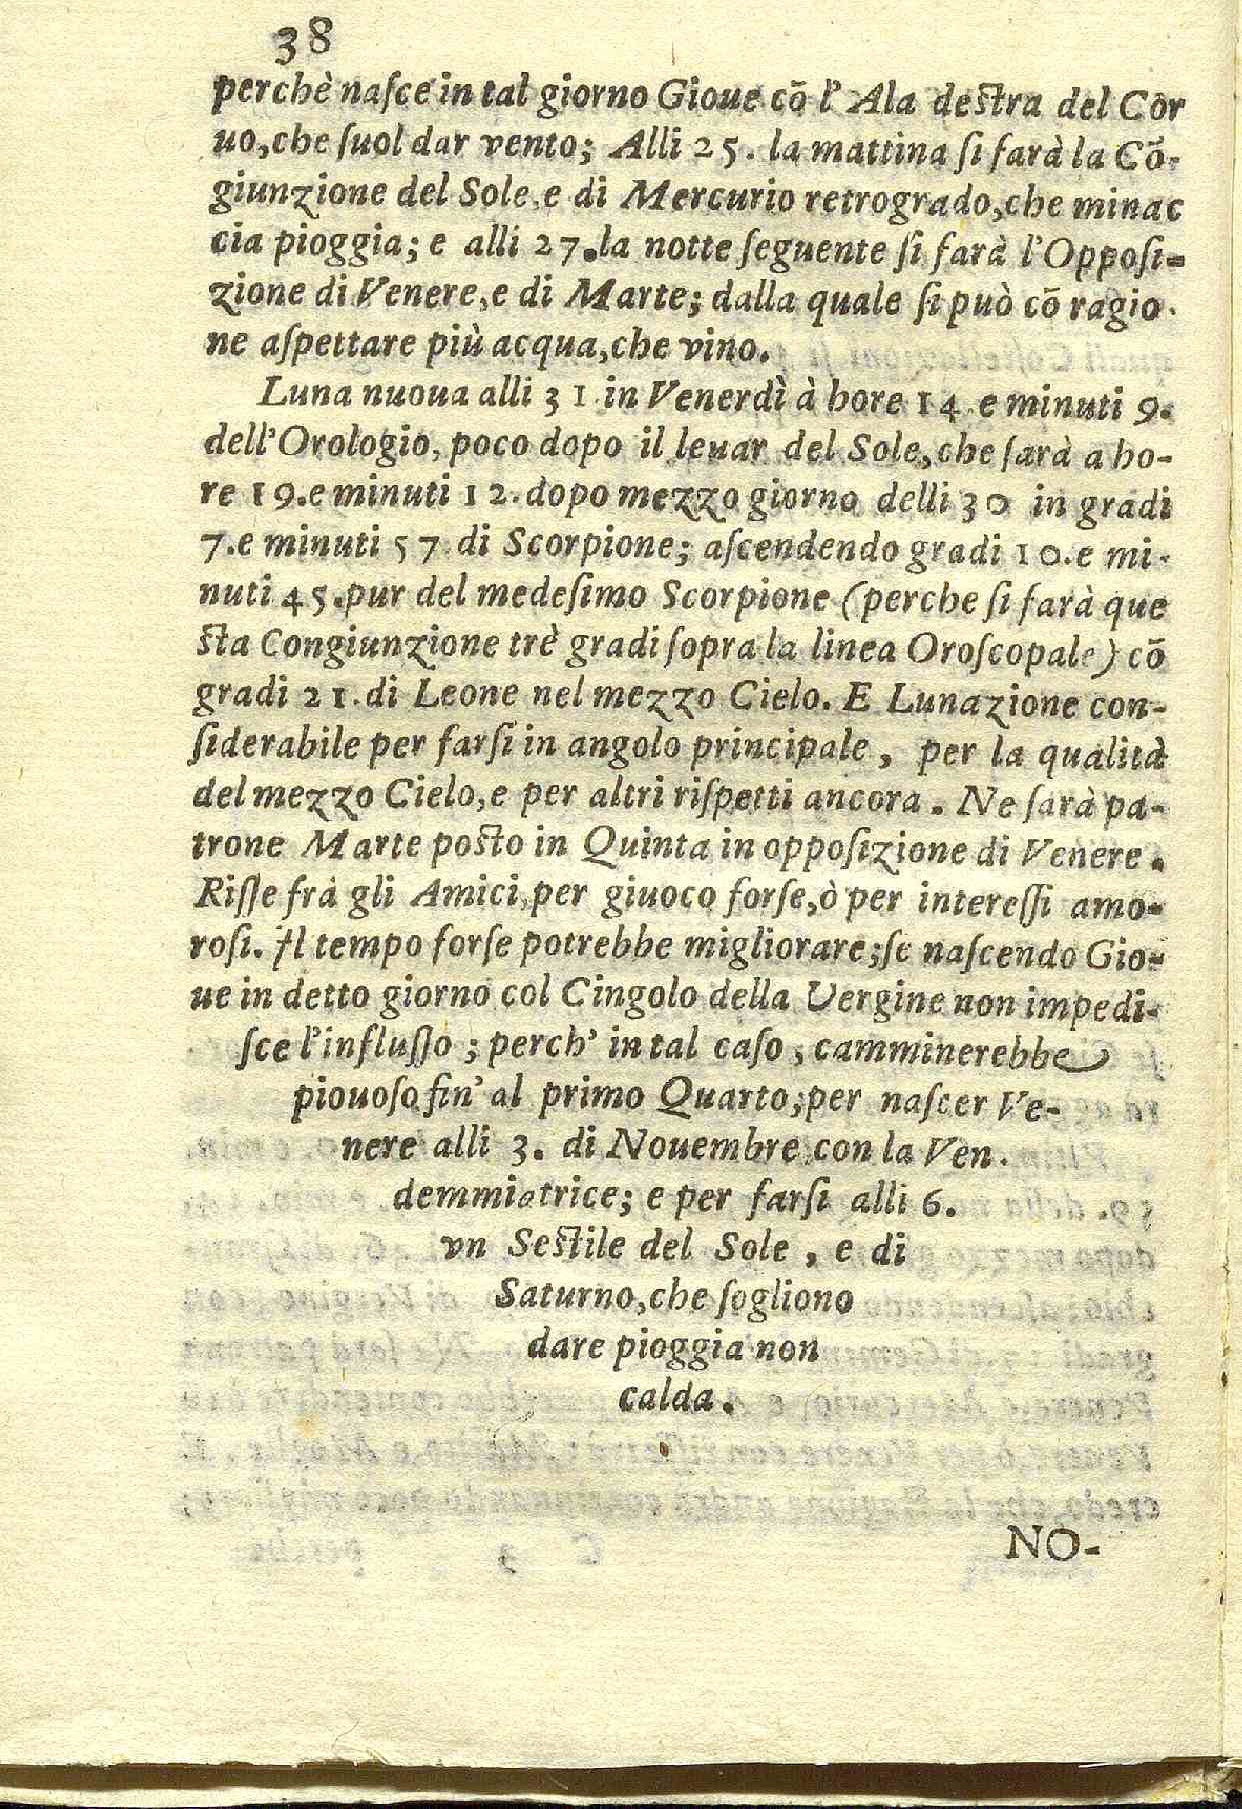 38
perchè naſce in tal giorno Gioue cō l' Ala deſtra del Cor
uo, che ſuol dar vento; Alli 25. la mattina ſi farà la Cō-
giunzione del Sole, e di Mercurio retrogrado, che minac
cia pioggia; e alli 27. la notte ſeguente ſi farà l'Oppoſi-
zione di Venere, e di Marte; dalla quale ſi può cō ragio-
ne aſpettare più acqua, che vino.
Luna nuoua alli 31 in Venerdì à hore 14. e minuti 9.
dell'Orologio, poco dopo il leuar del Sole, che ſarà a ho-
re 19. e minuti 12. dopo mezzo giorno delli 30 in gradi
7. e minuti 57 di Scorpione; aſcendendo gradi 10. e mi-
nuti 45. pur del medeſimo Scorpione (perche ſi farà que
ſta Congiunzione trè gradi ſopra la linea Oroſcopale) cō
gradi 21. di Leone nel mezzo Cielo. E Lunazione con-
ſiderabile per farſi in angolo principale, per la qualità
del mezzo Cielo, e per altri riſpetti ancora. Ne ſarà pa-
trone Marte poſto in Quinta in oppoſizione di Venere.
Riſſe frà gli Amici, per giuoco forſe, ò per intereſſi amo-
roſi. Il tempo forſe potrebbe migliorare; ſe naſcendo Gio-
ue in detto giorno col Cingolo della Vergine non impedi-
ſce l'influſſo; perch' in tal caſo, camminerebbe
piouoſo fin' al primo Quarto; per naſcer Ve-
nere alli 3. di Nouembre con la Ven-
demmiatrice; e per farſi alli 6.
vn Seſtile del Sole, e di
Saturno, che ſogliono
dare pioggia non
calda.
NO-